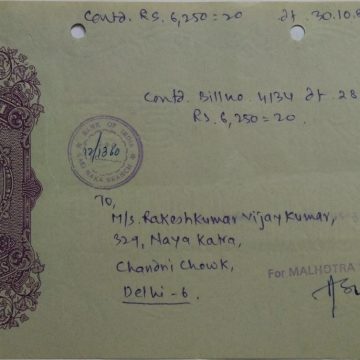 Contd. Rs. 6,250=20 dt. 30.10.
Contd. Bill no. 4134 dt. 28
Rs. 6,250=20.
BANK OF INDIA
NAKA BRANCH
To,
M/s. Rakeshkumar Vijaykumar,
329, Naya Katra,
Chandni Chowk,
Delhi-6.
For MALHOTRA